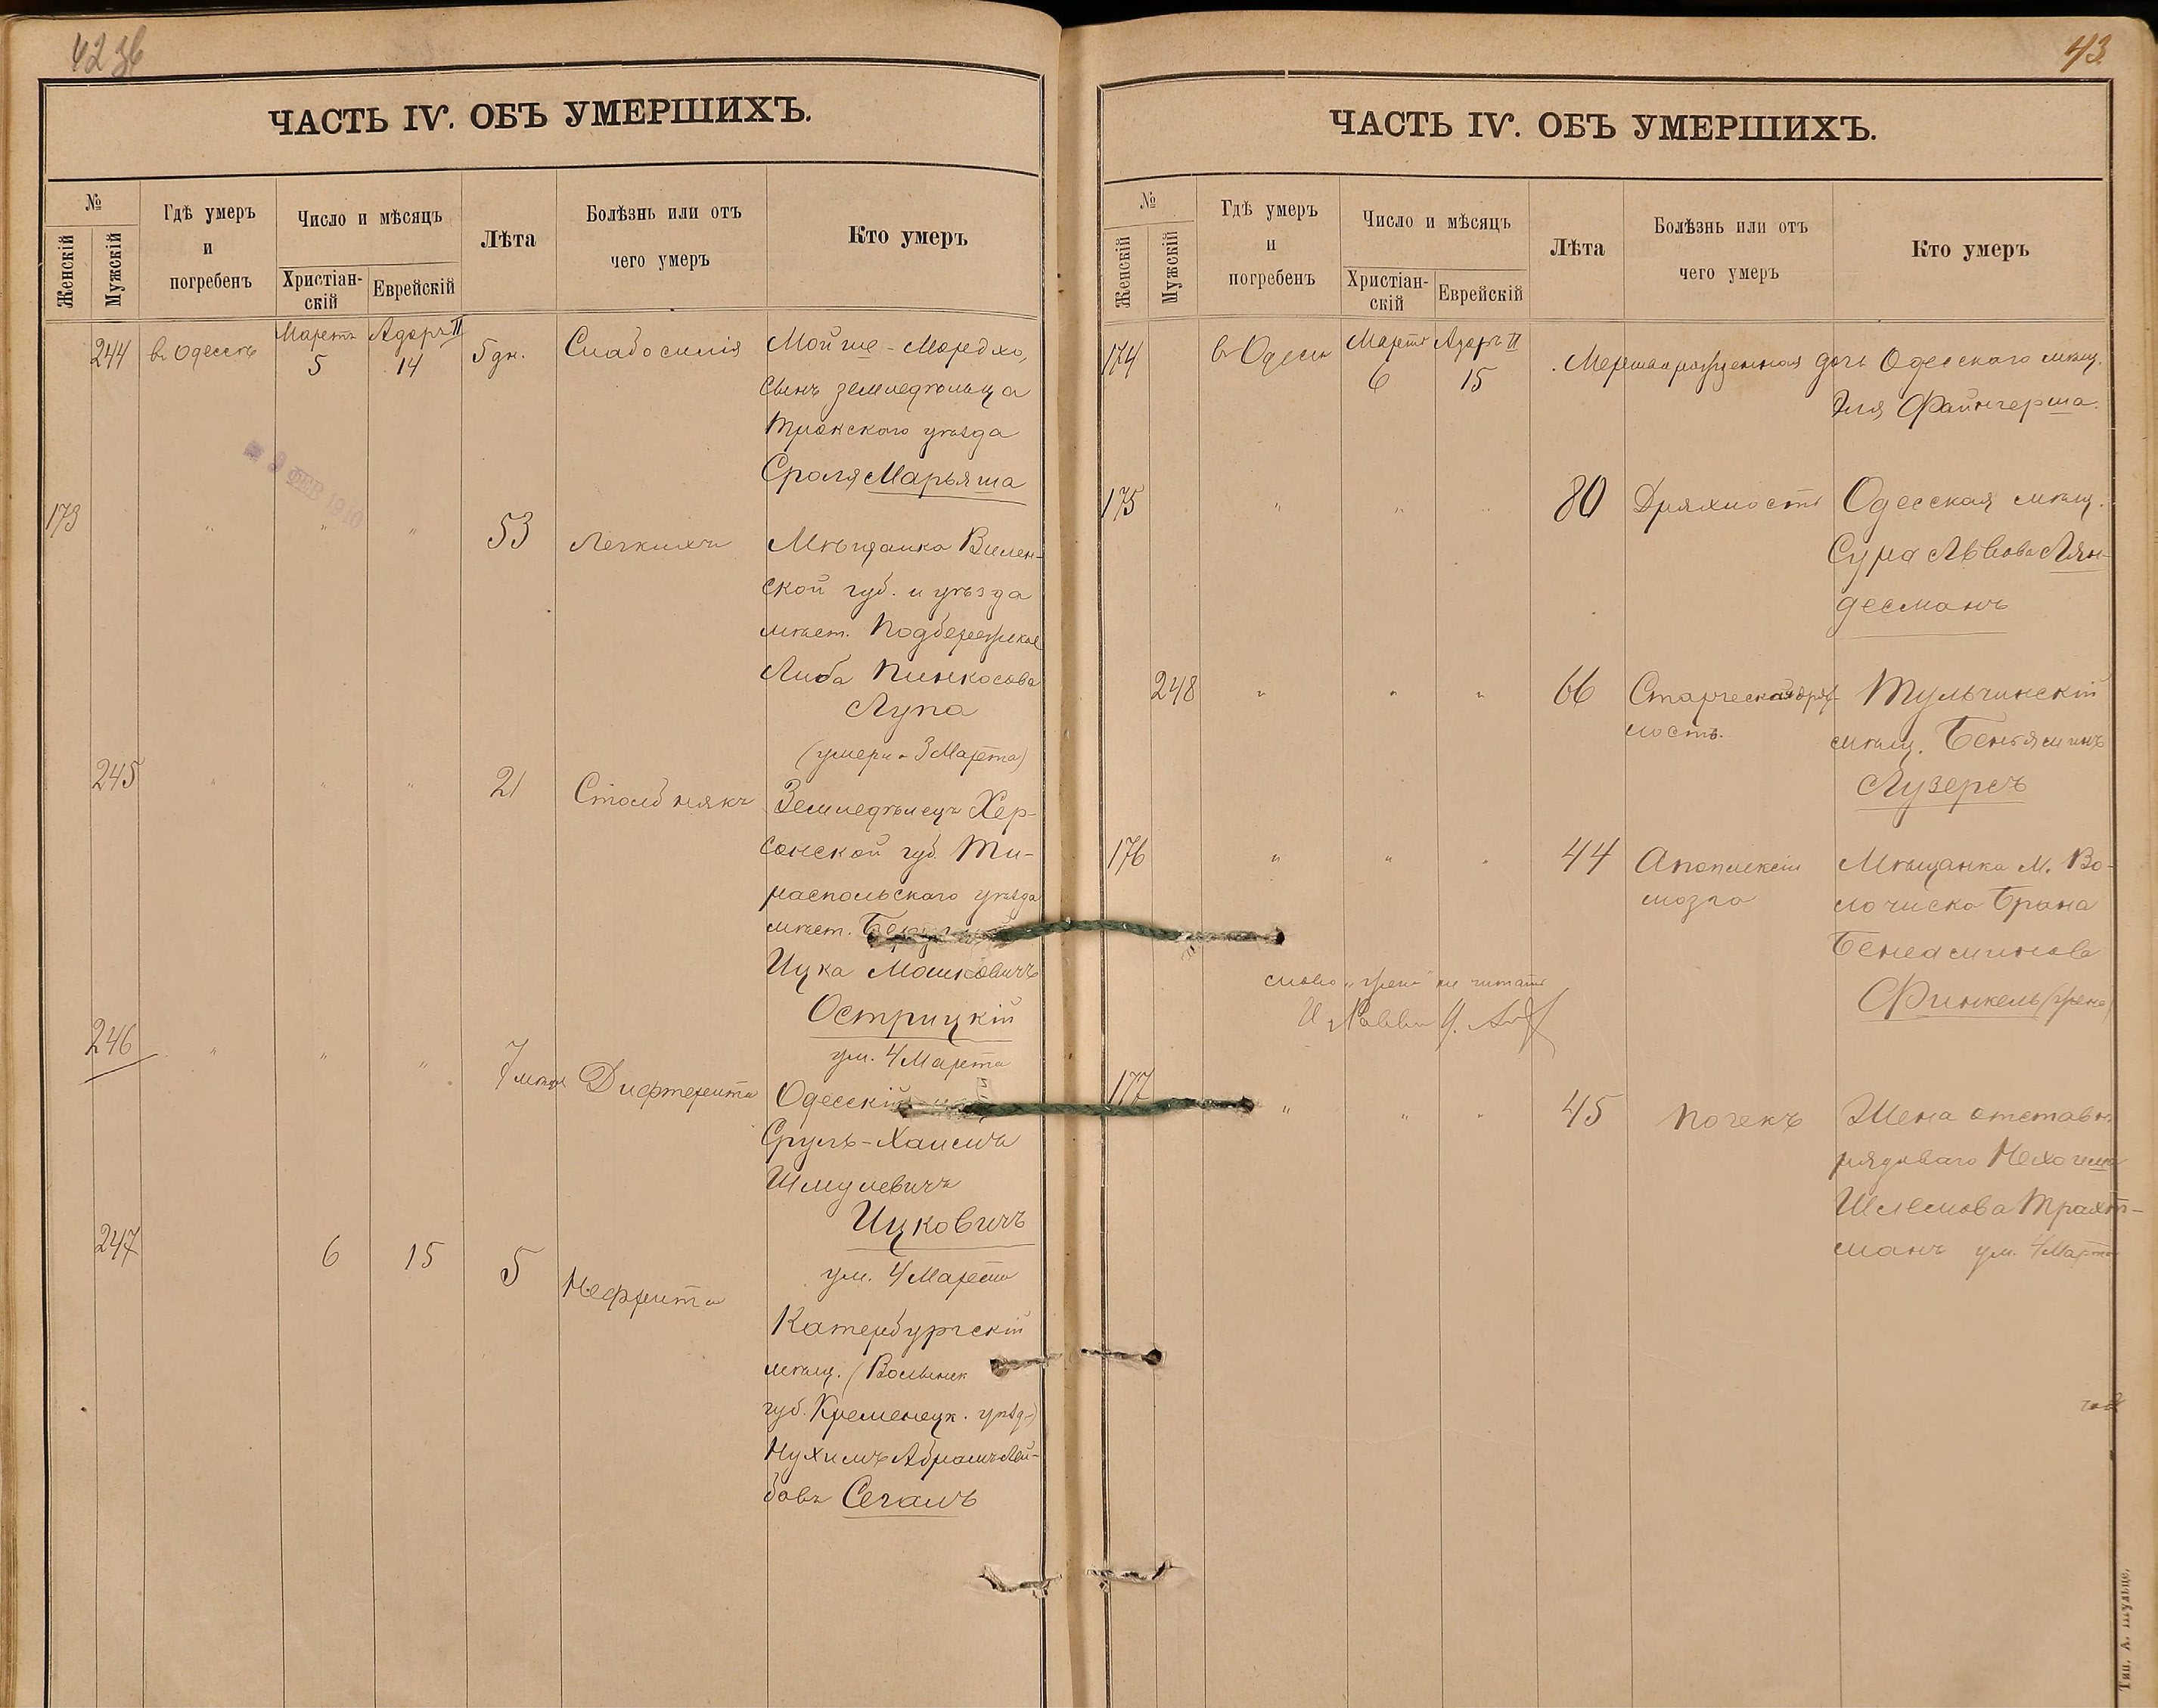 42 зб
ЧАСТЬ IV. ОБЪ УМЕРШИХЪ.
№
Женскій
Мужскій
Гдѣ умеръ
и
погребенъ
Число и мѣсяцъ
Христіан-
скій
Еврейскій
Лѣта
Болѣзнь или отъ
чего умеръ
Кто умеръ
244 въ Одессѣ Мартъ 5 Адаръ II 14 5 дн. Слабосилія Мойше-Мордхо,
сынъ земледѣльца
уѣзда
Сроля Марьяша
9 ФЕВ 1910
173 " " " 53 Легкихъ Мѣщанка Вилен-
ской губ. и уѣзда
мѣст. Подбережское
Либа Пинкосова
Лупа
(умерла 3 Марта)
245 " " " 21 Столбнякъ Земледѣлецъ Хер-
сонской губ. Ти-
распольскаго уѣзда
мѣст.
Ицка Мошковичъ
Острицкій
ум. 4 Марта
246 " " " 7 мѣс Дифтерита Одесскій
Сруль-Хаимъ
Шмулевичъ
Ицковичъ
ум. 4 Марта
247 6 15 5 Нефрита
Катербургскій
мѣщ. (Волынск
губ. Кременецк. уѣзд.)
Нухимъ Абрамъ Лей-
бовъ Сегалъ
43.
ЧАСТЬ IV. ОБЪ УМЕРШИХЪ.
№
Женскій
Мужскій
Гдѣ умеръ
и
погребенъ
Число и мѣсяцъ
Христіан-
скій
Еврейскій
Лѣта
Болѣзнь или отъ
чего умеръ
Кто умеръ
174 въ Одессѣ Мартъ 6 Адаръ II 15 Мертворожденная дочь Одесскаго мѣщ.
Эля Файнгерша.
175 " " " 80 Дряхлость Одесская мѣщ.
Сура Львова Лян-
десманъ
248 " " " 66 Старческая дрях-
лость. Тульчинскій
мѣщ. Беньяминъ
Лузеръ
176 " " " 44 Апоплексіи
мозга Мѣщанка М. Во-
лочиска Брана
Бенеаминова
Финкель
слово не читать
177 " " " 45 Почекъ Жена отставн.
рядоваго Нехога
Шлемова Трахт-
манъ ум. 4 Марта
Тип. А. Шульце.